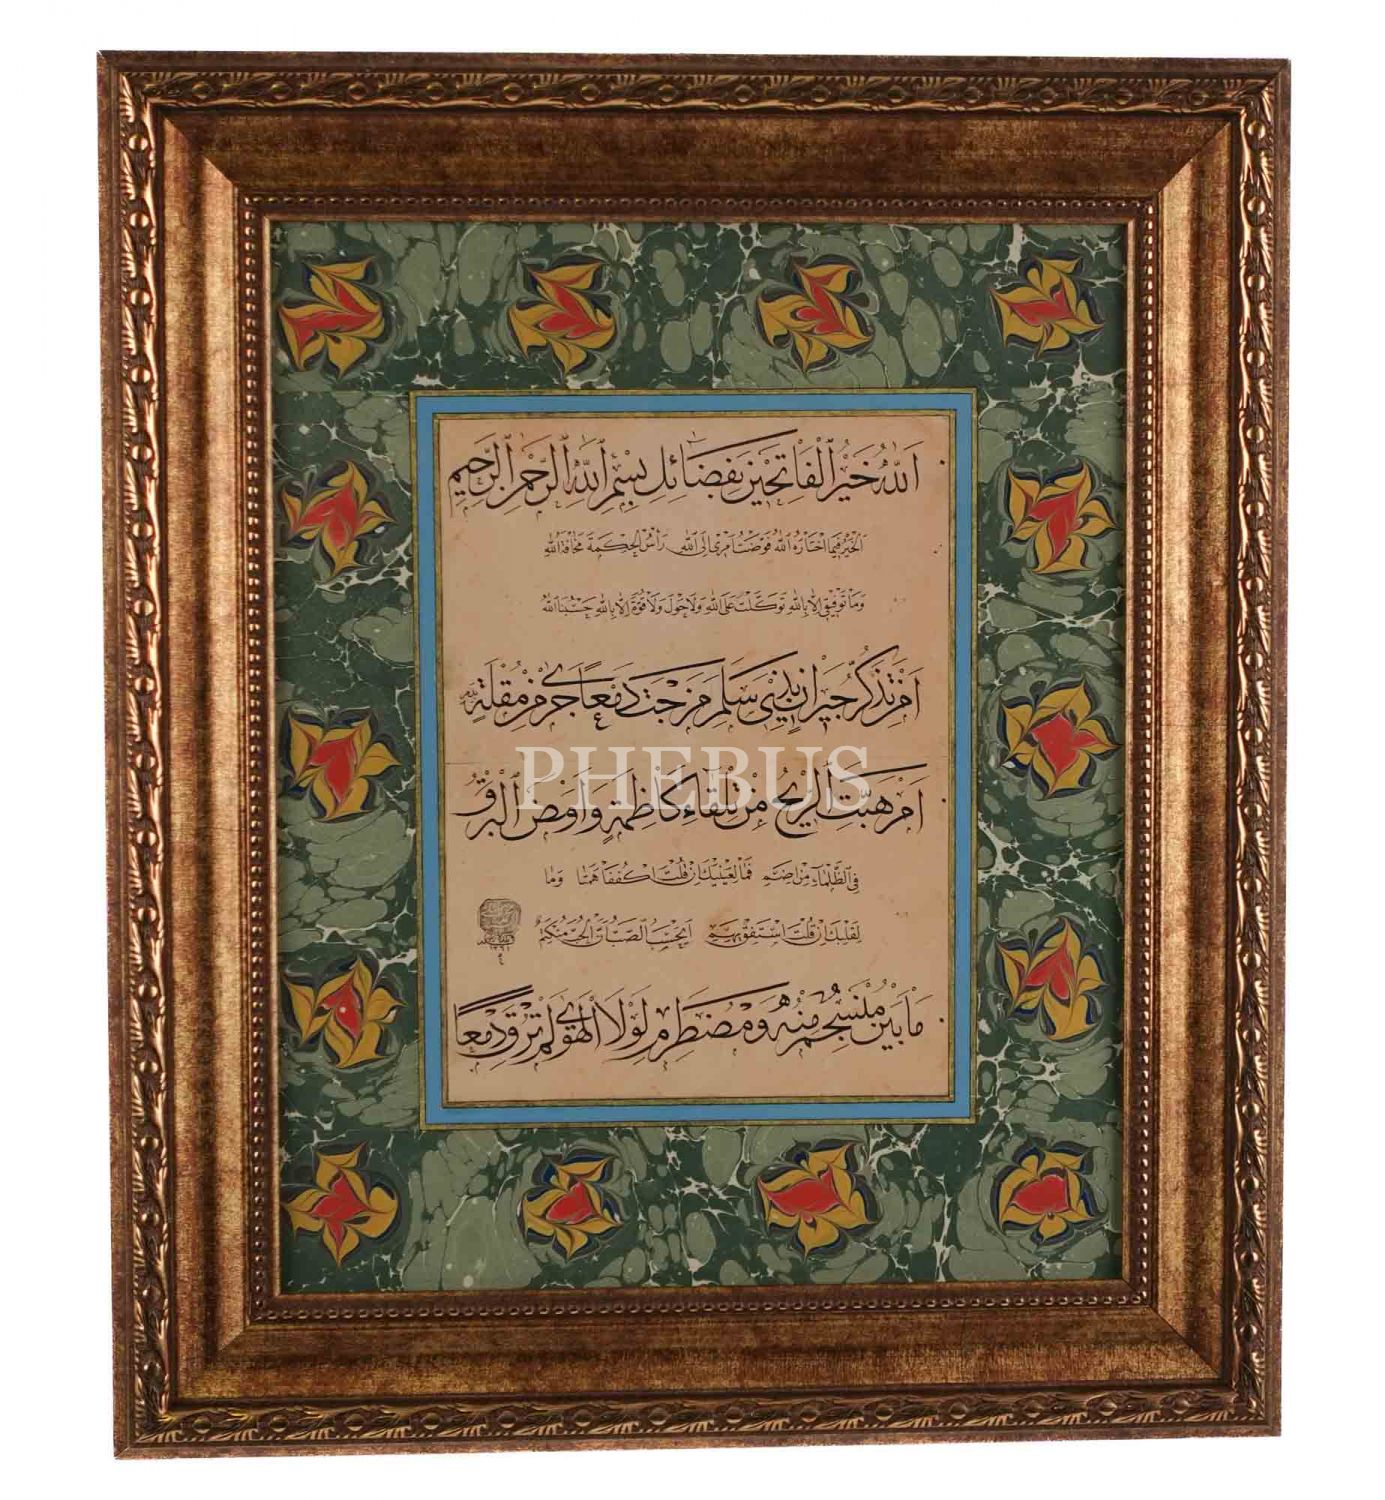 اَللّٰهُ خَيْرُ الْفَاتِحِينَ بِفَضَائِلِ بِسْمِ اللّٰهِ الرَّحْمٰنِ الرَّحِيمِ
اَلْخَيْرُ فِيمَا اخْتَارَهُ اللّٰهُ فَوَّضْتُ اَمْرِي اِلَى اللّٰهِ رَأْسُ الْحِكْمَةِ مَخَافَةُ اللّٰهِ
وَمَا تَوْفِيقِي اِلَّا بِاللّٰهِ تَوَكَّلْتُ عَلَى اللّٰهِ وَلَا حَوْلَ وَلَا قُوَّةَ اِلَّا بِاللّٰهِ حَسْبُنَا اللّٰهُ
اَمِنْ تَذَكُّرِ جِيرَانٍ بِذِي سَلَمِ مَزَجْتَ دَمْعًا جَرٰى مِنْ مُقْلَةٍ
PHEBUS
اَمْ هَبَّتِ الرِّيحُ مِنْ تِلْقَاءِ كَاظِمَةٍ وَاَوْمَضَ الْبَرْقُ
فِي الظَّلْمَاءِ مِنْ اِضَمِ فَمَا لِعَيْنَيْكَ اِنْ قُلْتَ اكْفُفَا هَمَتَا وَمَا
لِقَلْبِكَ اِنْ قُلْتَ اسْتَفِقْ يَهِمِ اَيَحْسَبُ الصَّبُّ اَنَّ الْحُبَّ مُنْكَتِمٌ
مَا بَيْنَ مُنْسَجِمٍ مِنْهُ وَمُضْطَرِمِ لَوْلَا الْهَوٰى لَمْ تُرِقْ دَمْعًا